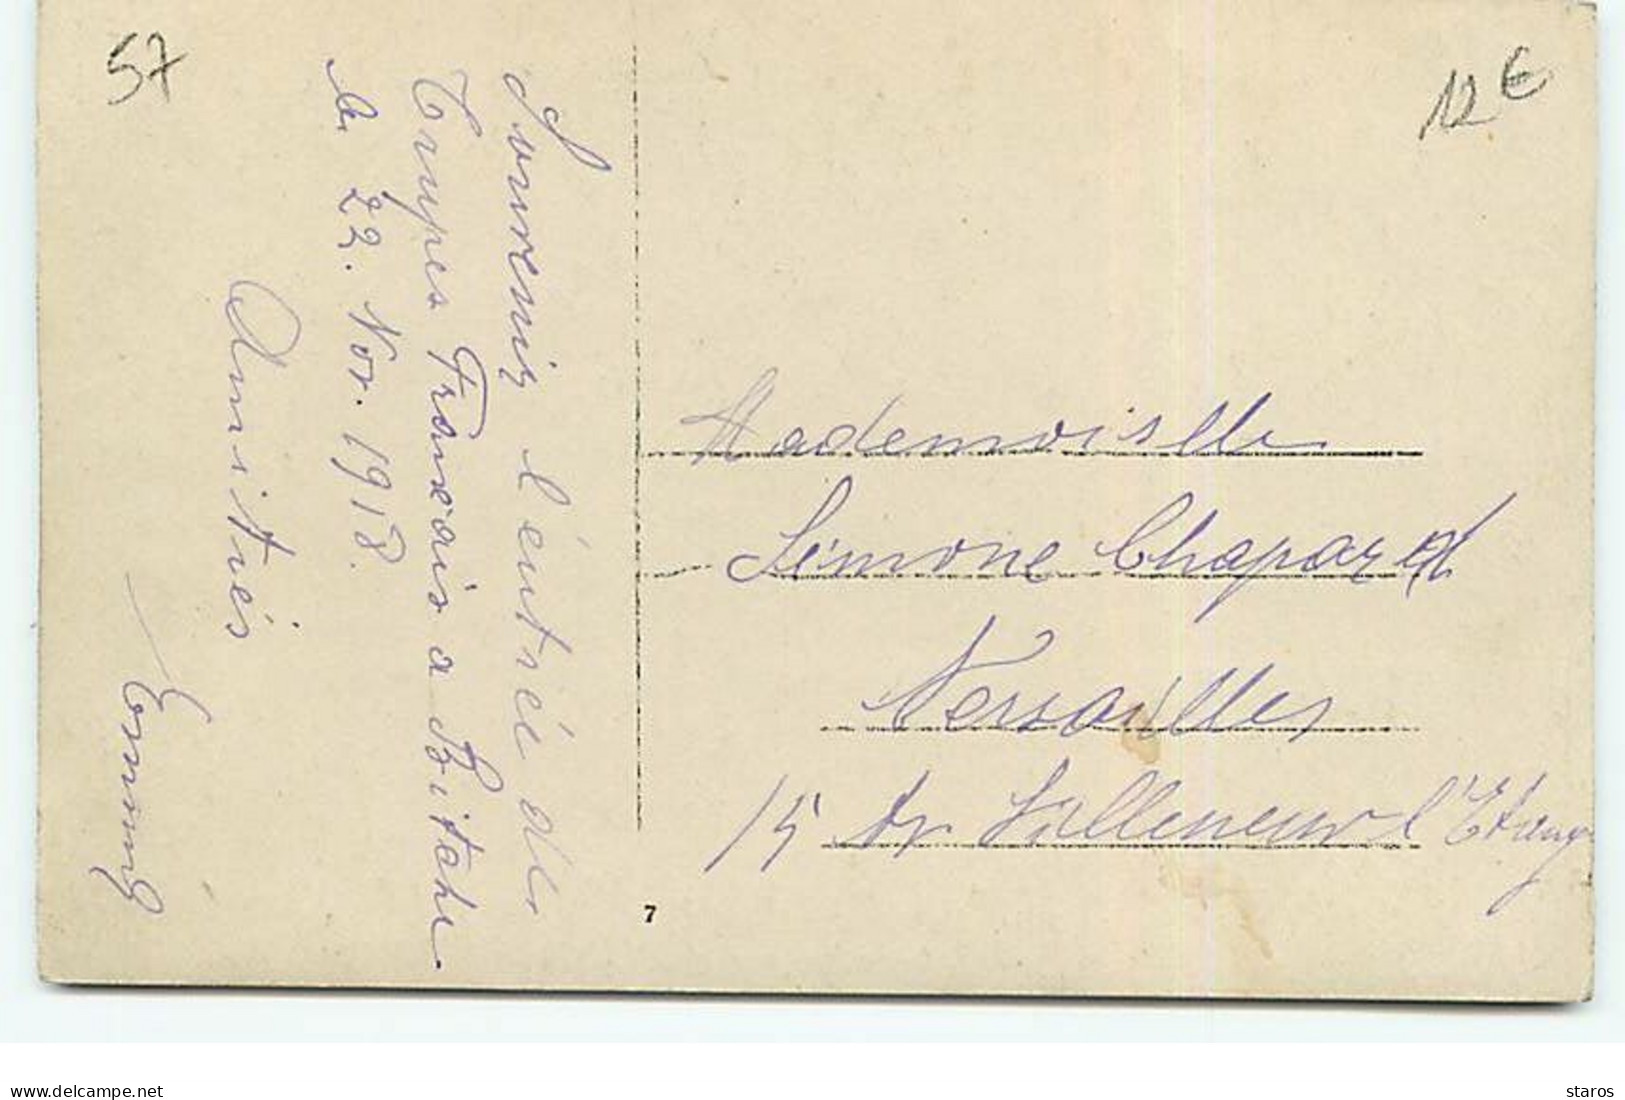 57
12 €
Souvenir l'éntreé der
Trupes Francais a Bitche
le 22. Nov. 1918.
Amitiés
Emmy
Mademoiselle
Simone Chapard
Versailles
15 Av Villeneuve l'Etang
7
www.delcampe.net
staros